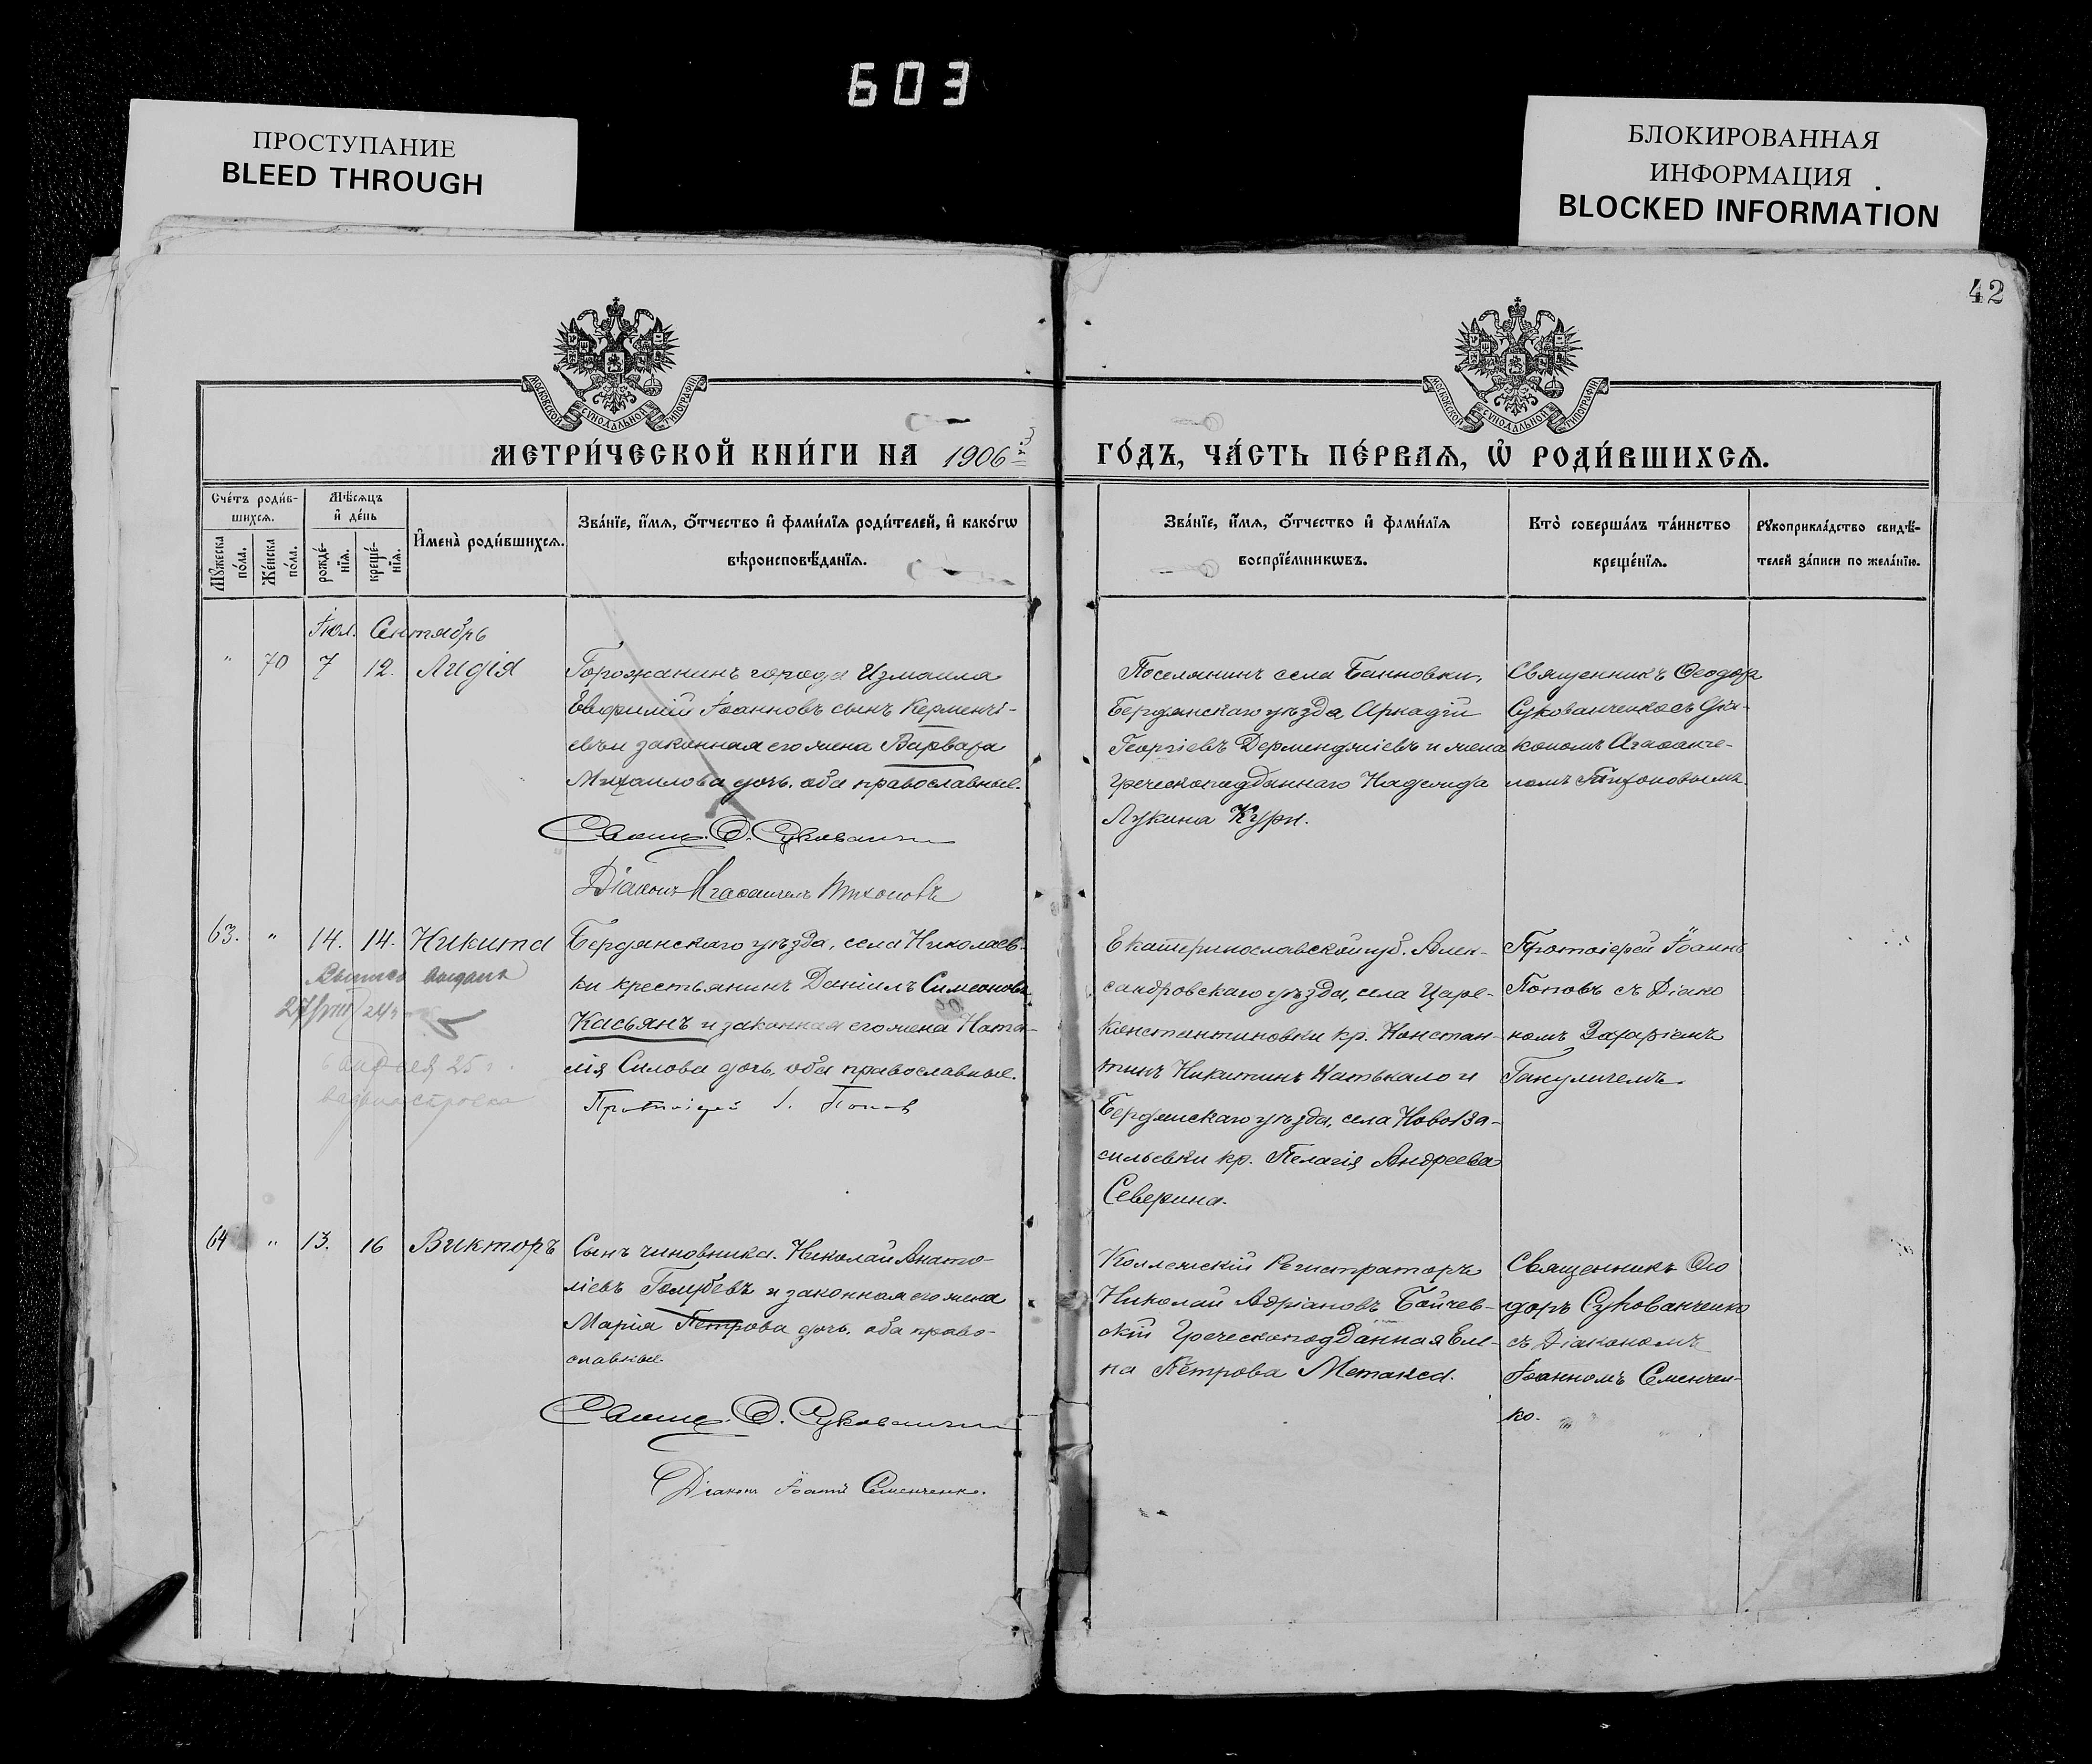 603
ПРОСТУПАНИЕ
BLEED THROUGH
БЛОКИРОВАННАЯ
ИНФОРМАЦИЯ
BLOCKED INFORMATION
42
МОСКОВСКОЙ СѴНОДАЛЬНОЙ ТИПОГРАФІИ
МОСКОВСКОЙ СѴНОДАЛЬНОЙ ТИПОГРАФІИ
МЕТРИ́ЧЕСКОЙ КНИ́ГИ НА 1906й
ГО́ДЪ, ЧА́СТЬ ПЕ́РВАѦ, Ѡ҆ РОДИ́ВШИХСѦ.
Сче́тъ роди́в-
шихсѧ.
Мꙋ́жеска по́ла.
Же́нска по́ла.
Мѣ́сѧцъ
и҆ де́нь
рожде́-
нїѧ.
креще́-
нїѧ.
И҆мена̀ роди́вшихсѧ.
Зва́нїе, и҆́мѧ, ѻ҆́тчество и҆ фами́лїѧ роди́телей, и҆ како́гѡ
вѣроисповѣ́данїѧ.
Зва́нїе, и҆́мѧ, ѻ҆́тчество и҆ фами́лїѧ
воспрїе́мникѡвъ.
Кто̀ соверша́лъ та́инство
креще́нїѧ.
Рꙋкоприкла́дство свидѣ́-
телей за́писи по жела́нїю.
Іюл. Сентябрь
" 70 7 12. Лидія
Горожанинъ города Измаила
Евфимій Іоанновъ сынъ Керменчі-
евъ и законная его жена Варвара
Михаилова дочь, оба православные.
Свящ. Ѳ. Сукованч
Діаконъ Агаѳангелъ Тихоновъ
Поселянинъ села Банновки,
Бердянскаго уѣзда Аркадій
Георгіевъ Дерменджіевъ и жена
греческоподданнаго Надежда
Лукина Кури.
Священникъ Ѳеодоръ
Сукованченко съ Діа-
кономъ Агаѳанге-
ломъ Тихоновымъ.
63. " 14. 14. Никита
выдана
Бердянскаго уѣзда, села Николаев-
ки крестьянинъ Даніилъ Симеоновъ
Касьянъ и законная его жена Ната-
лія Силова дочь, оба православные.
Протоіерей І. Попов
Екатеринославской губ. Алек-
сандровскаго уѣзда, села Царе-
константиновки кр. Констан-
тинъ Никитинъ Катькало и
Бердянскаго уѣзда, села Нововa-
сильевки кр. Пелагія Андреева
Северина.
Протоіерей Іоаннъ
Поповъ съ Діако
номъ Захаріемъ
64 " 13. 16 Викторъ
Сынъ чиновника. Николай Анато-
ліевъ Голубевъ и законная его жена
Марія Петрова дочь, оба право-
славные.
Свящ. Ѳ. Сукованч
Діаконъ Іоаннъ Семенченко.
Коллежскій Регистраторъ
Николай Адріановъ Бойчев-
скій Греческоподданная Еле-
на Петрова Метакса.
Священникъ Ѳео
доръ Сукованченко
съ Діакономъ
Іоанномъ Семенчен-
ко.